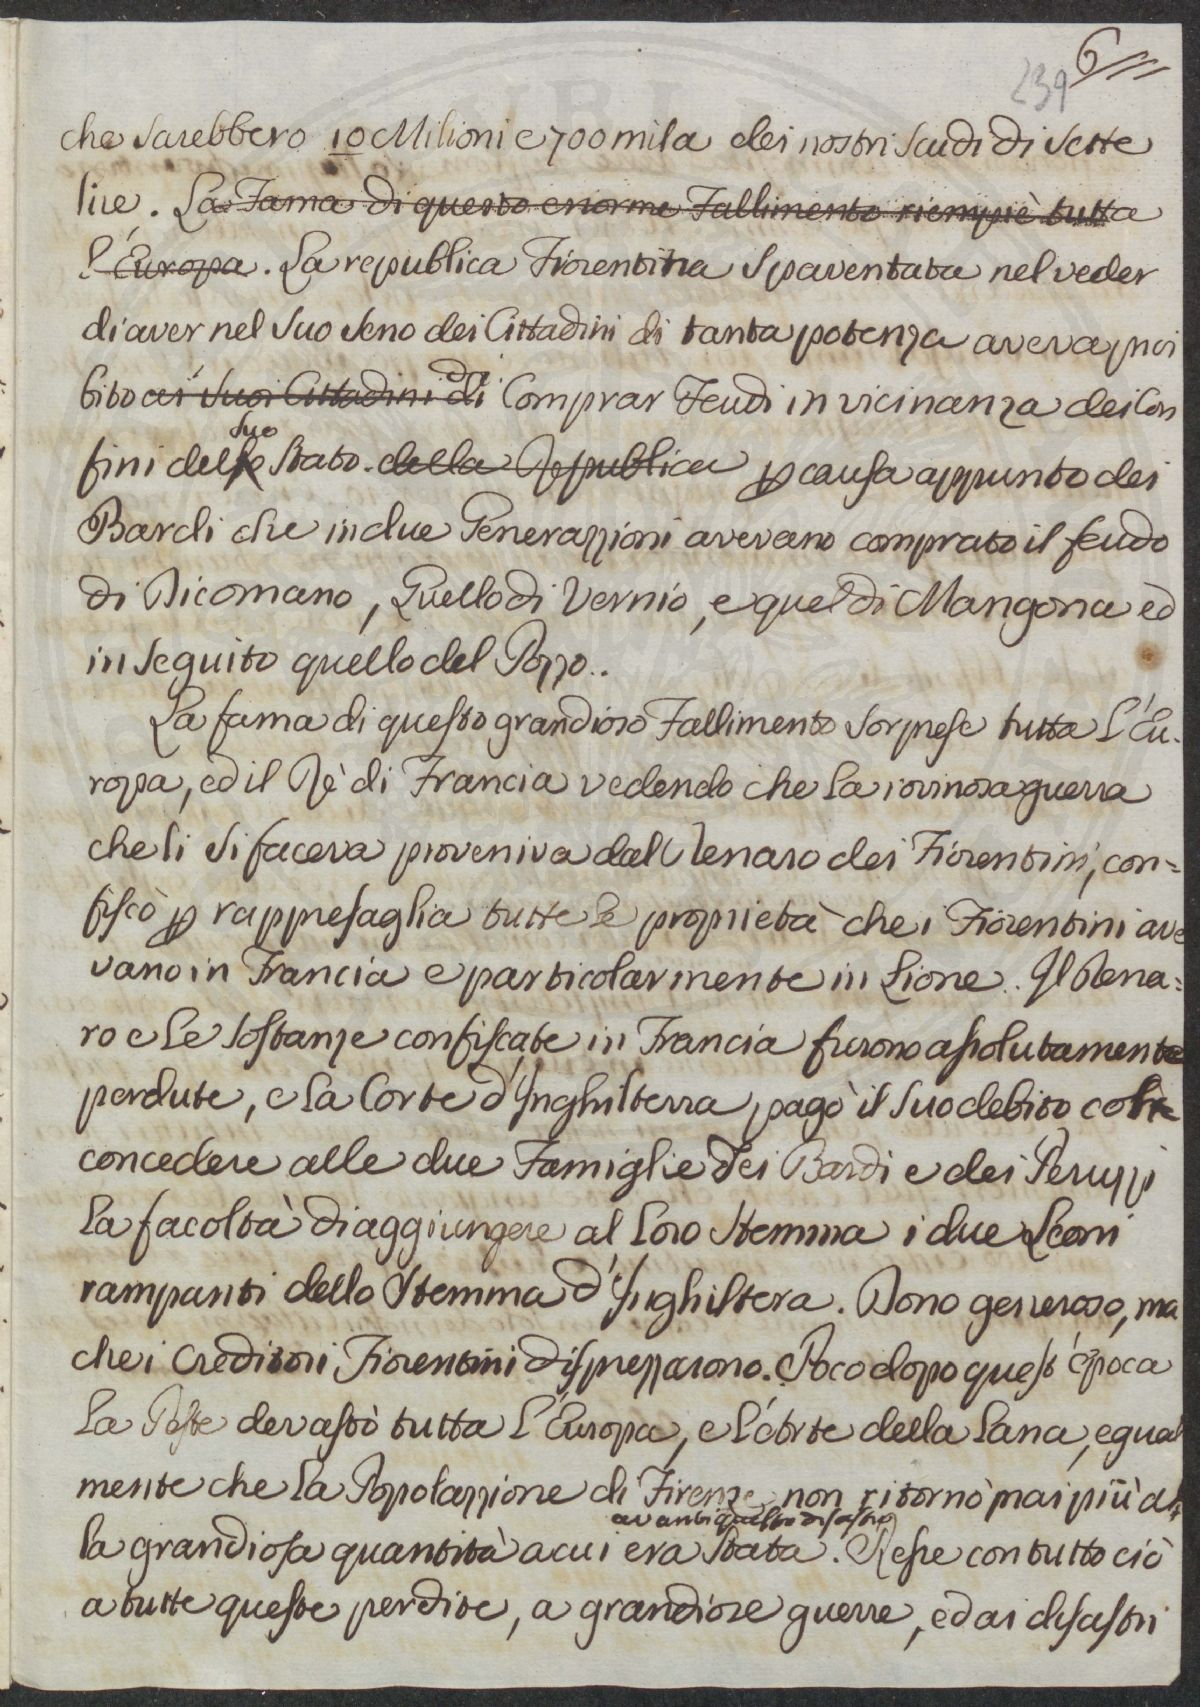 6
239
che sarebbero 10 Milioni e 700 mila dei nostri scudi di sette
lire. La Fama di questo enorme Fallimento riempiè tutta
l'Europa. La republica Fiorentina spaventata nel veder
di aver nel suo seno dei Cittadini di tanta potenza aveva proi
bito ai suoi Cittadini di di Comprar Feudi in vicinanza dei Con
suo
fini dello Stato. della Republica p causa appunto dei
Bardi che in due Generazzioni avevano comprato il feudo
di Dicomano, Quello di Vernio, e quel di Mangona ed
in seguito quello del Pozzo..
La fama di questo grandioso Fallimento sorprese tutta l'Eu-
ropa, ed il Rè di Francia vedendo che la rovinosa guerra
che li si faceva proveniva dal Denaro dei Fiorentini, con=
fiscò p rappresaglia tutte le proprietà che i Fiorentini ave
vano in Francia e particolarmente in Lione. Il Dena=
ro e le sostanze confiscate in Francia furono assolutamente
perdute, e la Corte d'Inghilterra pagò il suo debito col
concedere alle due Famiglie dei Bardi e dei Peruzzi
la facoltà di aggiungere al loro stemma i due Leoni
rampanti dello Stemma d'Inghiltera. Dono generoso, ma
che i Creditori Fiorentini disprezzarono. Poco dopo quest'època
la Peste devastò tutta l'Europa, e l'Arte della lana, egual
mente che la Popolazzione di Firenze non ritornò mai più al
avanti questo disastro
la grandiosa quantità a cui era stata. Resse con tutto ciò
a tutte queste perdite, a grandiose guerre, ed ai disastri